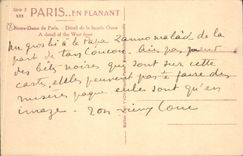 Série 2
PARIS.. EN FLANANT
Notre-Dame de Paris. - Détail de la façade Ouest
A detail of the West front
un gros bi à le Papa malade de la
part de ton Loulou. Aie pas peur
des bêtes noires qui sont sur cette
carte, elles peuvent pas te faire des
misères puisque elles sont qu'en
image. ton vieux Lou